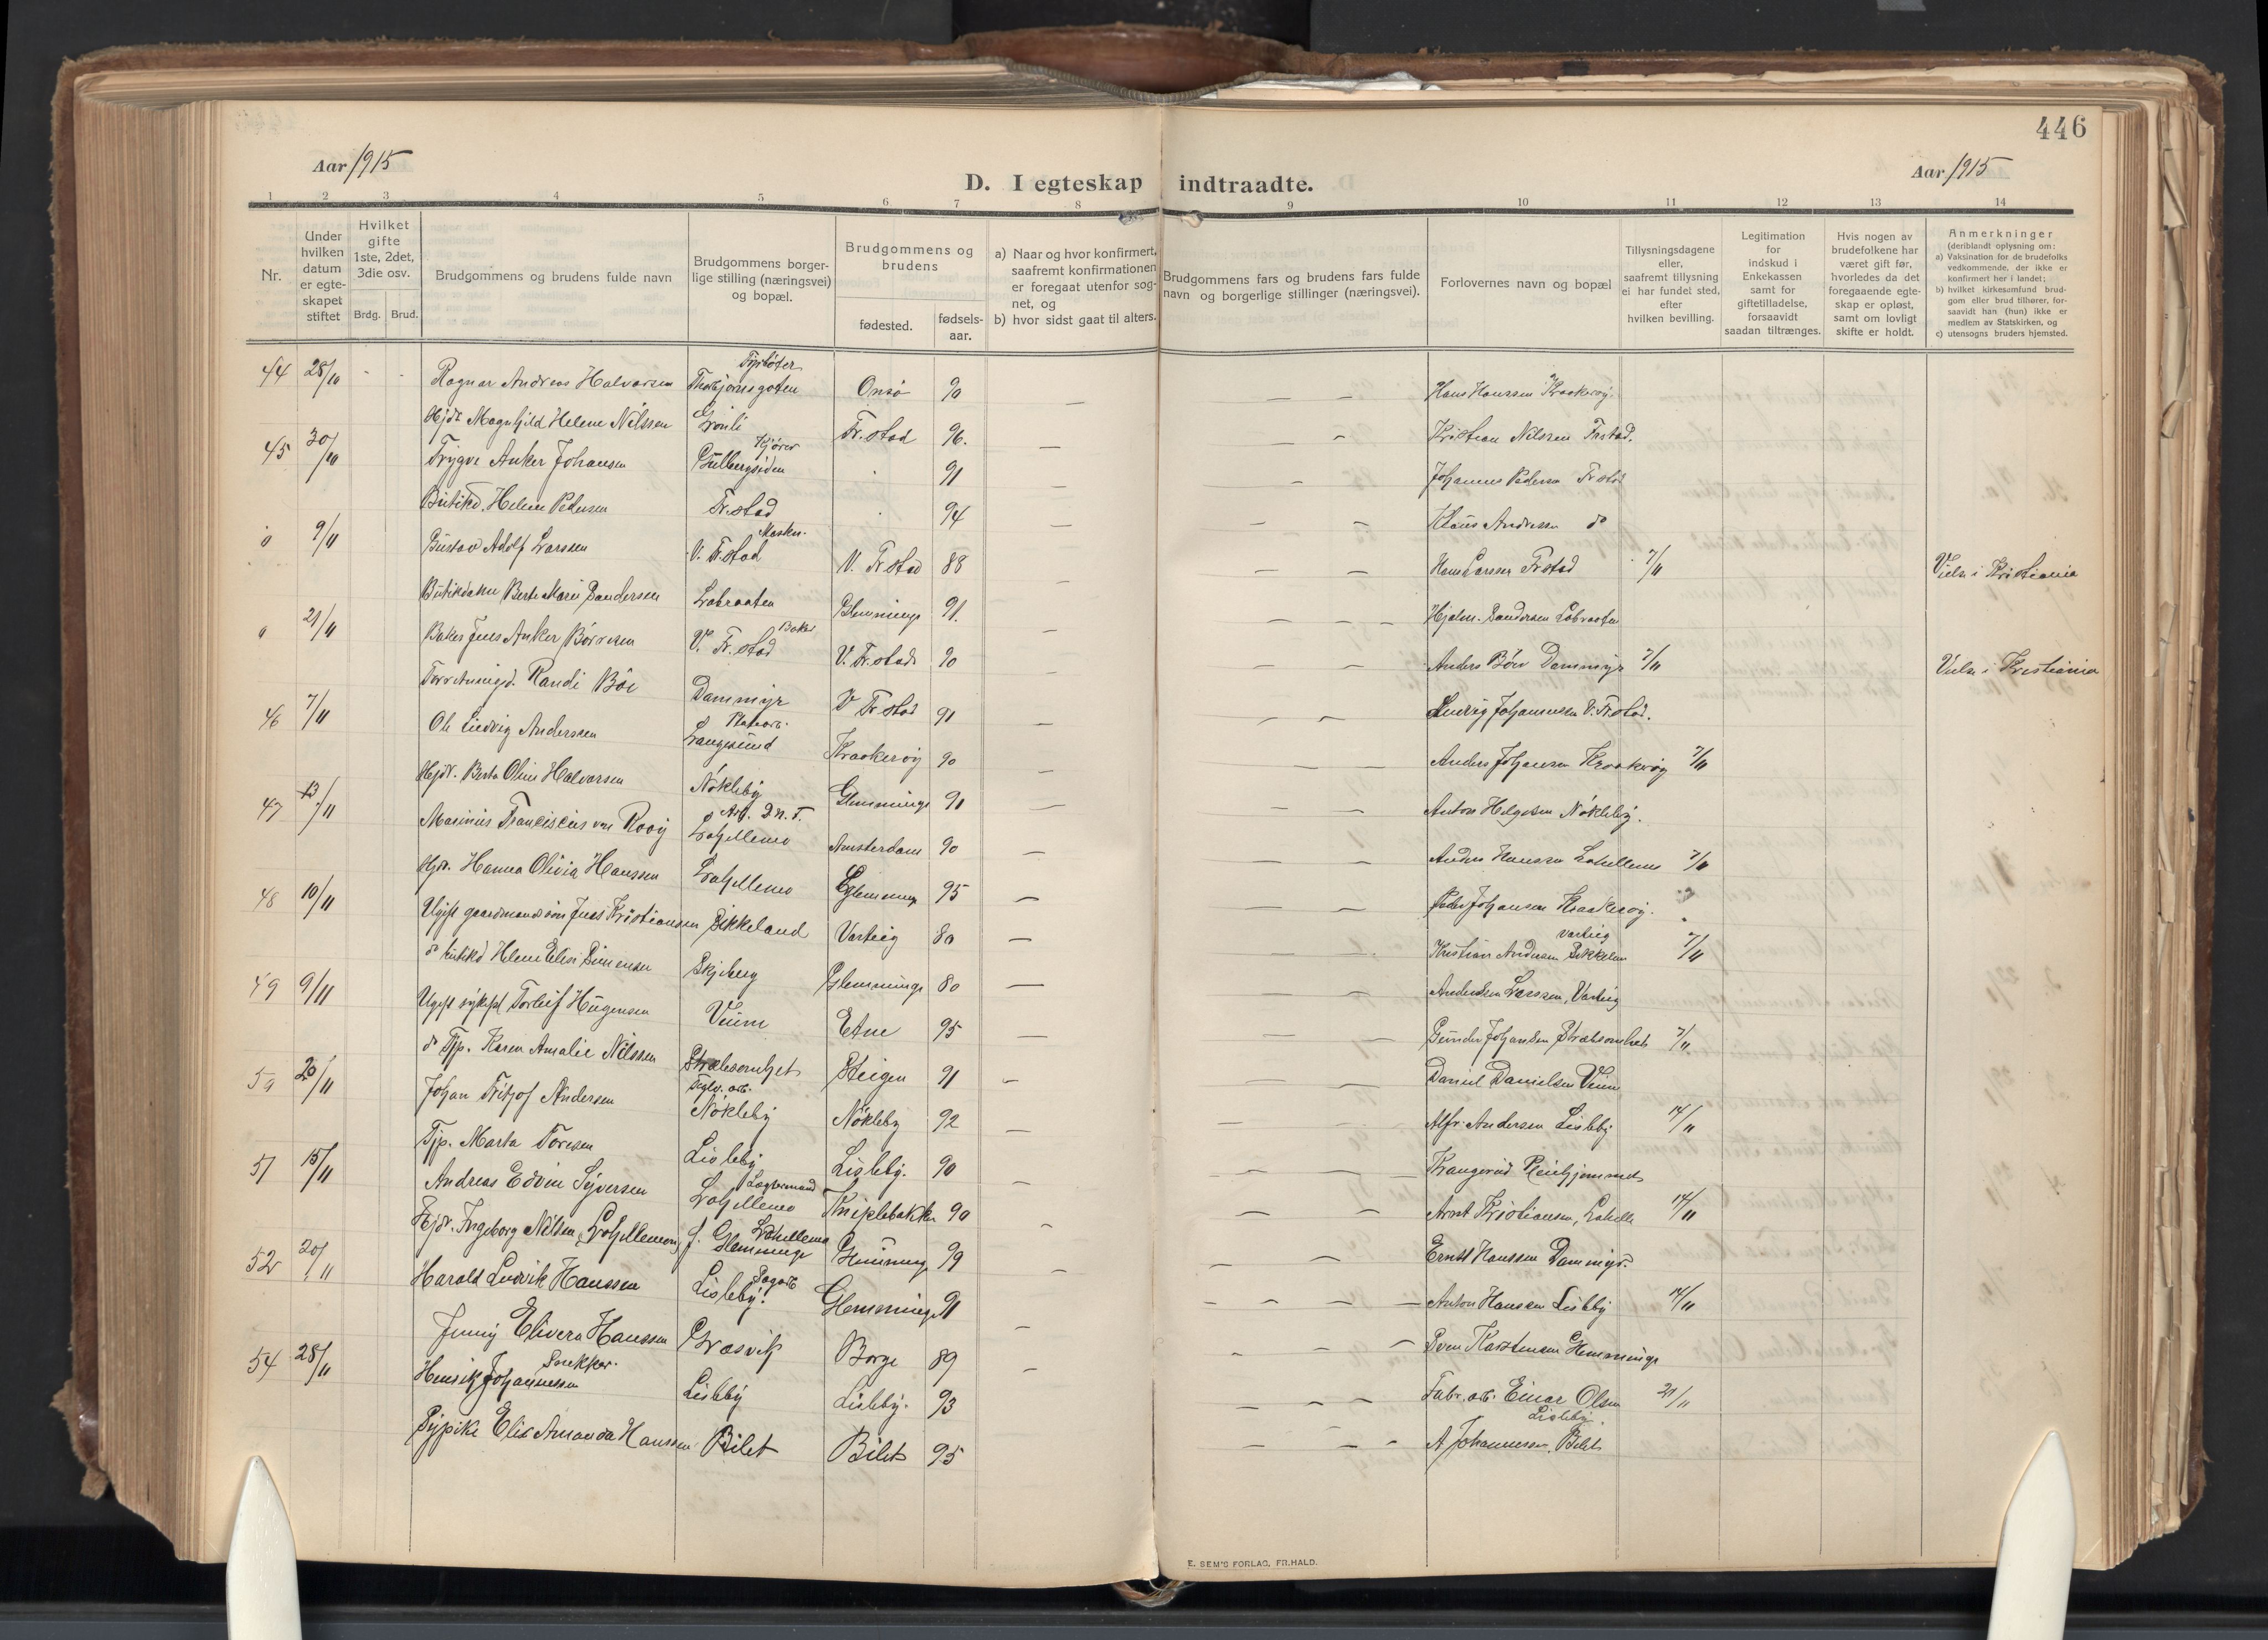 446
Aar 1915
Aar 1915
D. I egteskap indtraadte.
1 2 3 4 5 6 7 8 9 10 11 12 13 14
Nr.
Under hvilken datum er egteskapet stiftet
Hvilket gifte 1ste, 2det, 3die osv.
Brdg. Brud.
Brudgommens og brudens fulde navn
Brudgommens borgerlige stilling (næringsvei) og bopæl.
Brudgommens og brudens
fødested.
fødselsaar.
a) Naar og hvor konfirmert, saafremt konfirmationen er foregaat utenfor sognet, og
b) hvor sidst gaat til alters.
Brudgommens fars og brudens fars fulde navn og borgerlige stillinger (næringsvei).
Forlovernes navn og bopæl
Tillysningsdagene eller, saafremt tillysning ei har fundet sted, efter hvilken bevilling.
Legitimation for indskud i Enkekassen samt for giftetilladelse, forsaavidt saadan tiltrænges.
Hvis nogen av brudefolkene har været gift før, hvorledes da det foregaaende egteskap er opløst, samt om lovligt skifte er holdt.
Anmerkninger
(deriblandt oplysning om:
a) Vaksination for de brudefolks vedkommende, der ikke er konfirmert her i landet;
b) hvilket kirkesamfund brudgom eller brud tilhører, forsaavidt han (hun) ikke er medlem av Statskirken, og
c) utensogns bruders hjemsted.
44 28/10 - - Ragnar Andreas Halvorsen Thorbjørnsgaten Onsø 90 — — - - Hans Hanssen Kraakerøy.
Hjdr. Magnhild Helene Nilssen Grønli Fr.stad 96. — — - Kristian Nilssen Frstad.
45 30/10 Trygve Anker Johansen Kjører Gulbergsiden 91 — - Johannes Pedersen Frstad
Butikd. Helene Pedersen Fr.stad 94 — — - Klaus Andresen do
0 9/11 Gustav Adolf Larssen V. Frstad V. Frstad 88 — — — Hans Larssen Frstad 7/11 Viels i Kristiania
Berte Marie Sandersen Labraaten Glemminge 91. — — - - Hjalm. Sandersen Labraaten
0 21/11 Baker Jens Anker Børresen Baker V. Fr.stad V. Frstad 90 — — — Anders Bøe Dammyr 7/11 Viels i Kristiania
Randi Bøe Dammyr V Frstad 91 — — — Ludvig Johannessen V. Frstad.
46 7/11 Ole Ludvig Anderssen Langesund Kraakerøy 90 — — — Anders Johansen Kraakerøy 7/11
Hjdr. Berta Oline Halvorsen Nøkleby Glemminge 91 — — — Anton Helgesen Nøkleby.
47 13/11 Marinius Franciscus van Rooy Lahellemo Amsterdam 90 — — — Anders Hanssen Lahellemo 7/11
Hjdr. Hanna Olivia Hanssen Lahellemo Glemminge 95 — — — Peder Johansen Kraakerøy.
48 10/11 Ugift gaardmandssøn Jens Kristiansen Sikkeland Varteig 80 — — — Kristian Andersen Sikkeland Varteig 7/11
do butikd Helene Elise Simensen Skjeberg Glemminge 80 — — — Larssen, Varteig
49 9/11 Ugift Torleif Haugensen Veum Etne 95 — — Gunder Johansen Stræbsomhet 7/11
do Tjp. Karen Amalie Nilssen Stræbsomhet Steigen 91 — — — Daniel Danielsen Veum
50 20/11 Johan Fritjof Andersen Teglv. arb. Nøkleby Nøkleby 92 — — — Alfr. Andersen Lisleby 14/11
Tjp. Marta Toresen Lisleby Lisleby. 90 — — — Pleiehjemmet
51 15/11 Andreas Edvin Syversen Lahellemo Kniplebakken 90 — — — Arnt Kristiansen, Lahelle 14/11
Hjdr. Ingeborg Nilsen, Lahellemo, f. Glemminge Lahellemo Glemminge 99 — — — Ernst Hanssen Dammyr.
52 20/11 Harald Ludvik Hanssen Sagarb Lisleby. Glemminge 91 — — — — Anton Hanssen Lisleby 14/11
Jenny Elivera Hanssen Græsvik Borge 89 — - - — Sven Karstensen Glemminge
54 28/11 Henrik Johannessen Snekker. Lisleby Lisleby. 93 — — — — Fabr. arb. Einar Olsen Lisleby. 21/11
Sypike Elise Amanda Hanssen Bilet Bilet 95 — — - A Johannessen, Bilet
E. SEM'S FORLAG, FR.HALD.